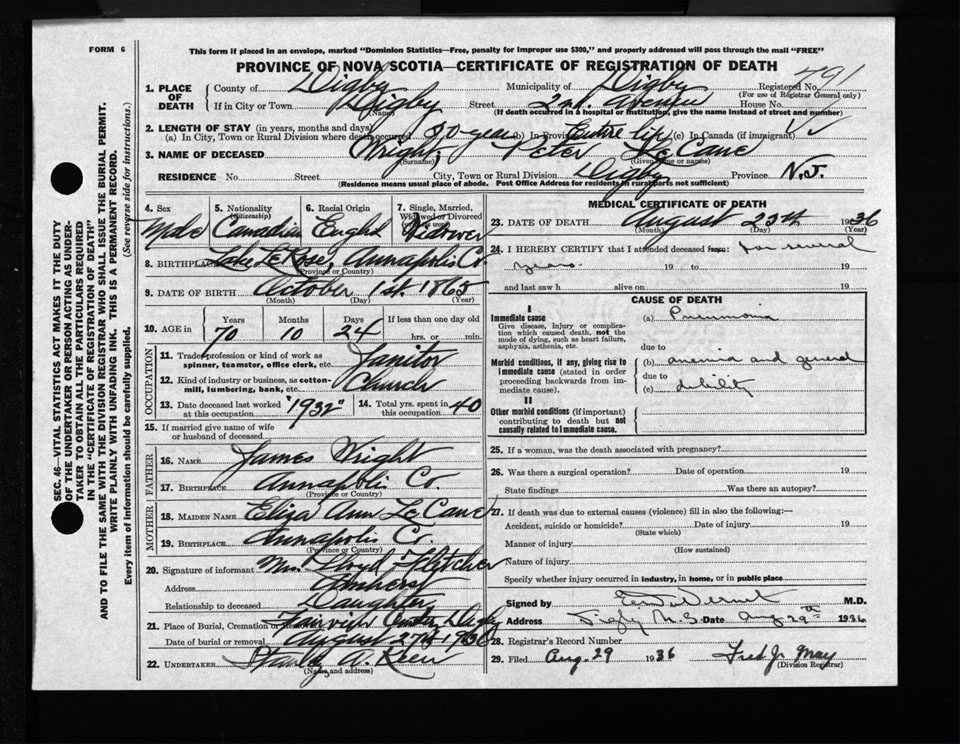 FORM 6
This form if placed in an envelope, marked "Dominion Statistics—Free, penalty for improper use $300," and properly addressed will pass through the mail "FREE"
PROVINCE OF NOVA SCOTIA—CERTIFICATE OF REGISTRATION OF DEATH
1. PLACE OF DEATH County of Digby Municipality of Digby Registered No. 791
(For use of Registrar General only)
If in City or Town Digby Street 2nd. Avenue House No.
(Name) (If death occurred in a hospital or institution, give the name instead of street and number)
2. LENGTH OF STAY (in years, months and days)
(a) In City, Town or Rural Division where death occurred 50 years (b) In Province Entire life (c) In Canada (if immigrant)
3. NAME OF DECEASED Wright, Peter Le Cane
(Surname) (Given name or names)
RESIDENCE No. Street City, Town or Rural Division Digby Province N.S.
(Residence means usual place of abode. Post Office Address for residents in rural parts not sufficient)
4. Sex Male
5. Nationality (Citizenship) Canadian
6. Racial Origin English
7. Single, Married, Widowed or Divorced Widower
8. BIRTHPLACE Lake LeRose, Annapolis Co.
(Province or Country)
9. DATE OF BIRTH October 1st. 1865
(Month) (Day) (Year)
10. AGE in Years 70 Months 10 Days 24 If less than one day old hrs. or min.
OCCUPATION
11. Trade, profession or kind of work as spinner, teamster, office clerk, etc. Janitor
12. Kind of industry or business, as cotton-mill, lumbering, bank, etc. Church
13. Date deceased last worked at this occupation "1932" 14. Total yrs. spent in this occupation 40
15. If married give name of wife or husband of deceased
FATHER
16. NAME James Wright
17. BIRTHPLACE Annapolis Co.
(Province or Country)
MOTHER
18. MAIDEN NAME Eliza Ann Le Cane
19. BIRTHPLACE Annapolis Co.
(Province or Country)
20. Signature of informant Mrs. Lloyd Fletcher
Address Amherst
Relationship to deceased Daughter
21. Place of Burial, Cremation or Removal Digby
Date of burial or removal August 27th 1936
22. UNDERTAKER Stanley A.
(Name and address)
MEDICAL CERTIFICATE OF DEATH
23. DATE OF DEATH August 25th 1936
(Month) (Day) (Year)
24. I HEREBY CERTIFY that I attended deceased from: for several
years. 19 to 19
and last saw h alive on 19
CAUSE OF DEATH
I
Immediate cause
Give disease, injury or complication which caused death, not the mode of dying, such as heart failure, asphyxia, asthenia, etc.
(a) Pneumonia
due to
Morbid conditions, if any, giving rise to immediate cause (stated in order proceeding backwards from immediate cause).
(b) anemia and general
due to
(c) debility
II
Other morbid conditions (if important) contributing to death but not causally related to immediate cause.
25. If a woman, was the death associated with pregnancy?
26. Was there a surgical operation? Date of operation 19
State findings Was there an autopsy?
27. If death was due to external causes (violence) fill in also the following:—
Accident, suicide or homicide? Date of injury 19
(State which)
Manner of injury
(How sustained)
Nature of injury
Specify whether injury occurred in industry, in home, or in public place
Signed by M.D.
Address Digby N.S. Date Aug 29th 1936
28. Registrar's Record Number
29. Filed Aug. 29 1936 May
(Division Registrar)
SEC. 46—VITAL STATISTICS ACT MAKES IT THE DUTY
OF THE UNDERTAKER OR PERSON ACTING AS UNDER-
TAKER TO OBTAIN ALL THE PARTICULARS REQUIRED
IN THE "CERTIFICATE OF REGISTRATION OF DEATH"
AND TO FILE THE SAME WITH THE DIVISION REGISTRAR WHO SHALL ISSUE THE BURIAL PERMIT.
WRITE PLAINLY WITH UNFADING INK. THIS IS A PERMANENT RECORD.
Every item of Information should be carefully supplied. (See reverse side for instructions.)